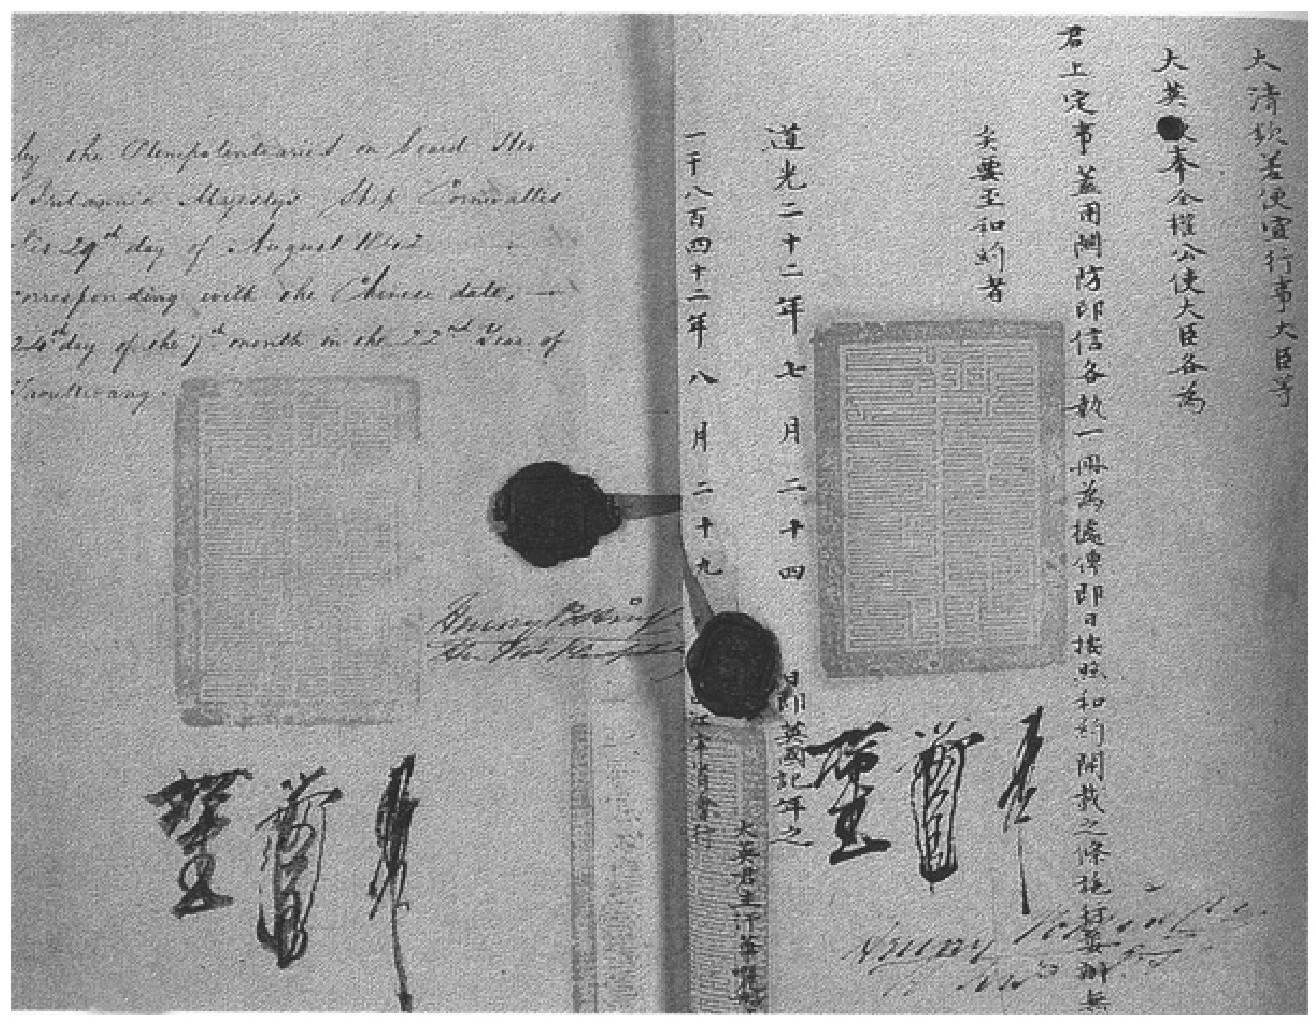 by the Plenipotentiaries on board Her
Britannic Majesty's Ship Cornwallis
29th day of August 1842
corresponding with the Chinese date,
24th day of the 7th month in the 22nd Year of
Henry Pottinger
大清欽差便宜行事大臣等
大英奉全權公使大臣各為
君上定事蓋用關防印信各執一冊為據俾即日按照和約開載之條施行妥辦無
矣要至和約者
道光二十二年七月二十四日即英國記年之
一千八百四十二年八月二十九
大英君主汗華麗船
Henry Pottinger